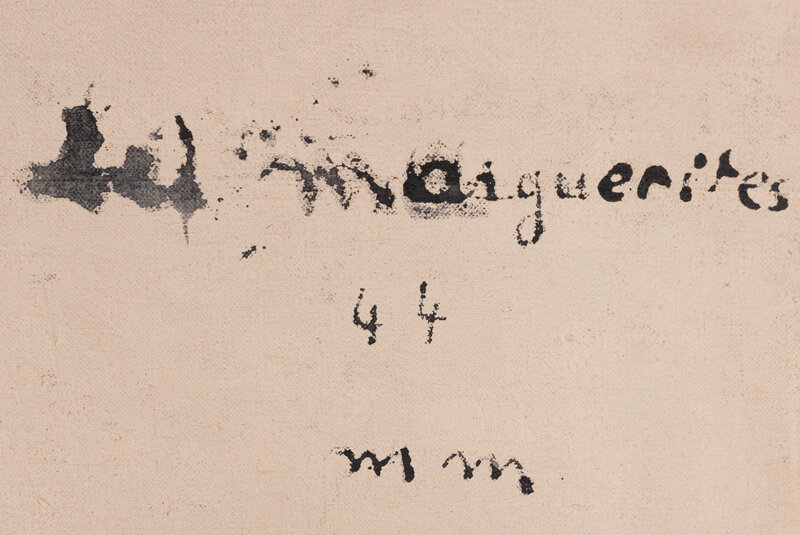 Les marguerites
44
mm